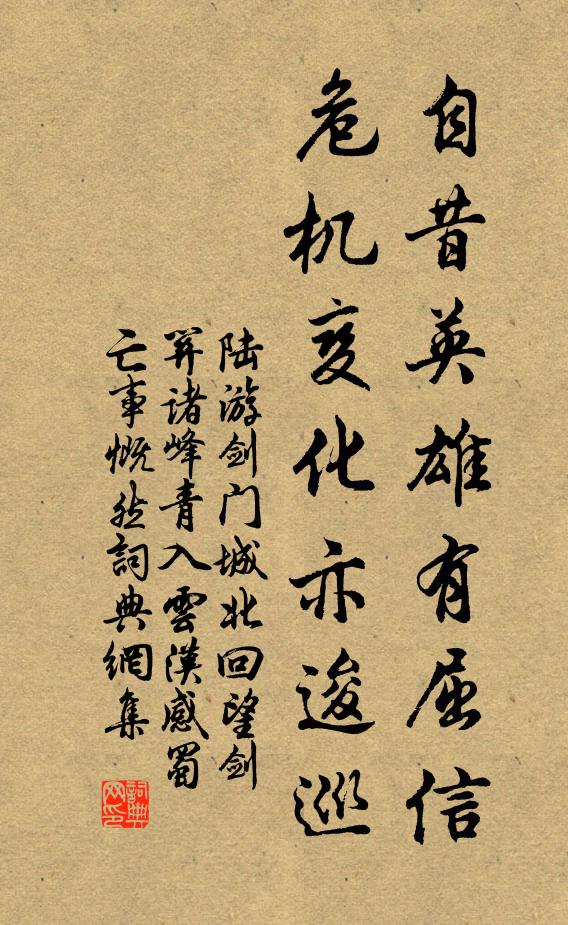 自昔英雄有屈信
危机变化亦逡巡
陆游剑门城北回望剑
关诸峰青入雲漢感蜀
亡事慨然詞典網集
詞典网印